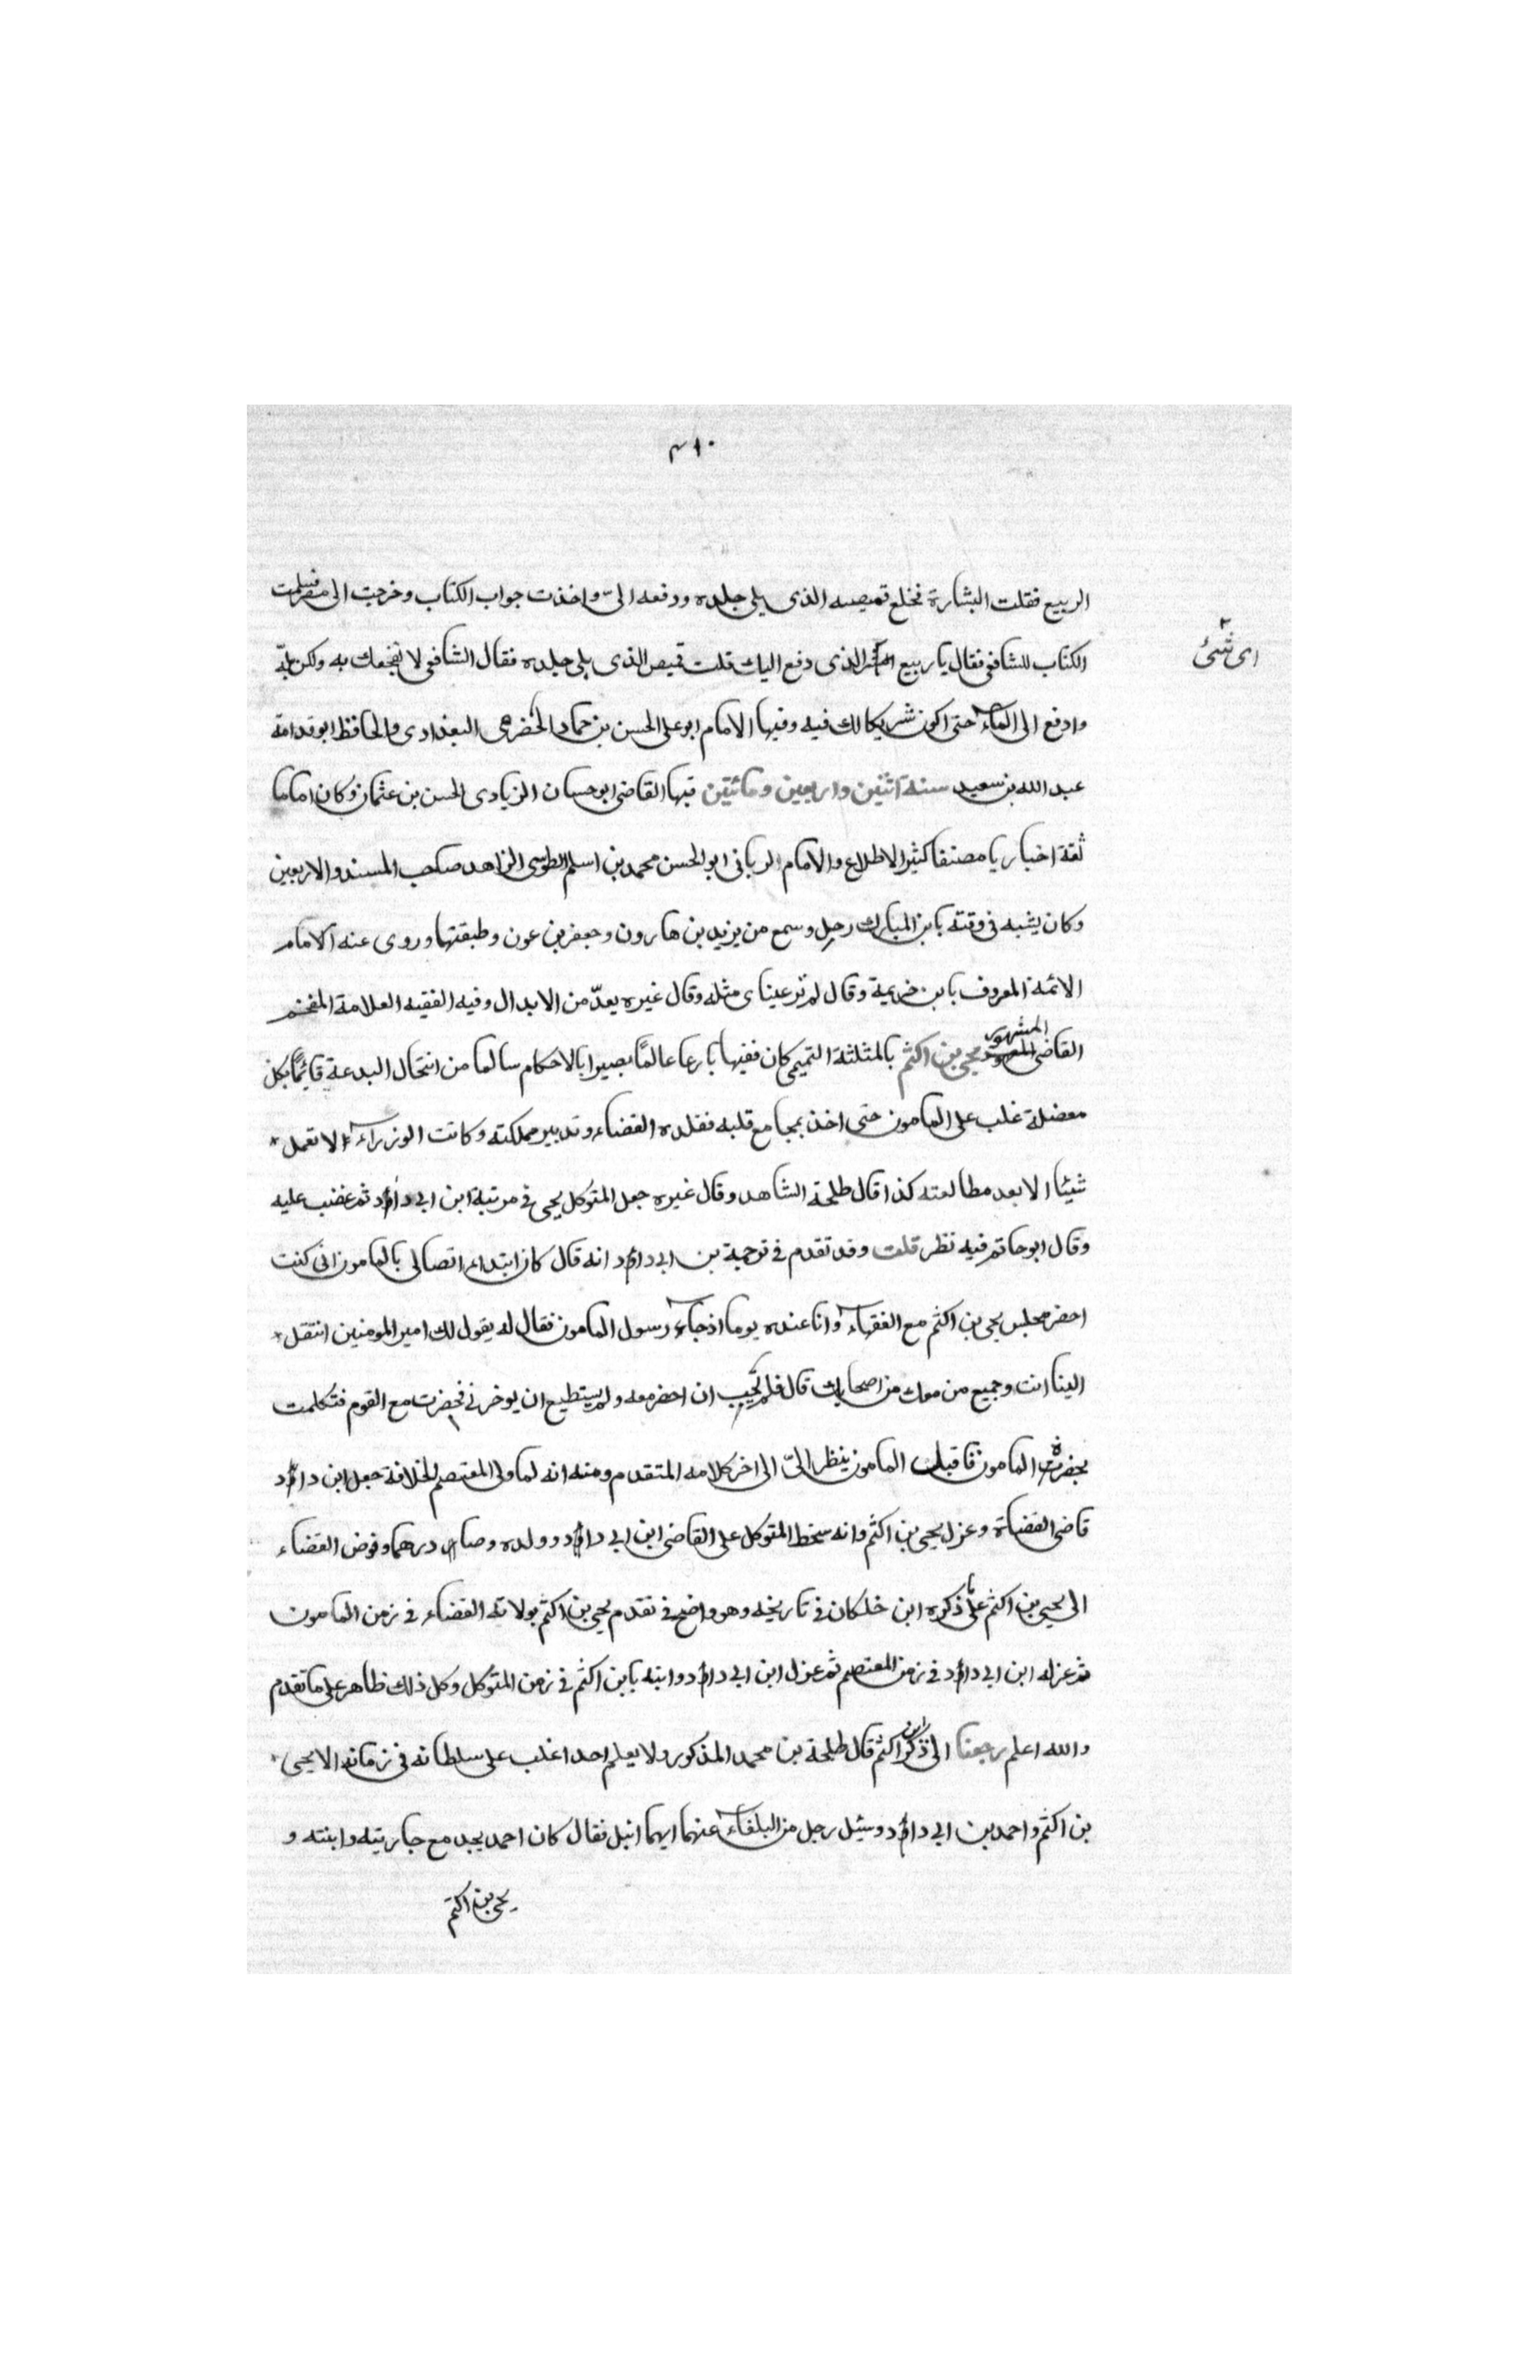 ٣١٠
الربيع فقلت البشارة فخلع قميصه الذى يلى جلده ودفعه الىّ واخذت جواب الكتاب وخرجت الى مصر فسلمت
اى شئ
الكتاب للشافعى فقال يا ربيع الذى دفع اليك قلت قميص الذى يلى جلده فقال الشافعى لا نفجعك به ولكن بلّه
وادفع الى الماء حتى اكون شريكا لك فيه وفيها الامام ابو على الحسن بن حماد الحضرمى البغدادى والحافظ ابو قدامة
عبد الله بن سعيد سنة اثنين واربعين ومائتين فيها القاضى ابو حسان الزيادى الحسن بن عثمان وكان اماما
ثقة اخباريا مصنفا كثير الاطلاع والامام الربانى ابو الحسن محمد بن اسلم الطوسى الزاهد صاحب المسند والاربعين
وكان يشبه فى وقته بابن المبارك رحل وسمع من يزيد بن هارون وجعفر بن عون وطبقتها وروى عنه الامام
الائمة المعروف بابن خزيمة وقال لم تر عيناى مثله وقال غيره يعدّ من الابدال وفيه الفقيه العلامة المفخم
القاضى المشهور يحيى بن اكثم بالمثلثة التميمى كان فقيها بارعا عالمًا بصيرا بالاحكام سالما من انتحال البدعة قائمًا بكل
معضلة غلب على المامون حتى اخذ بمجامع قلبه فقلده القضاء وتدبير مملكته وكانت الوزراء لا تعمل
شيئا الا بعد مطالعته كذا قال طلحة الشاهد وقال غيره جعل المتوكل يحيى فى مرتبة ابن ابى داؤد ثم غضب عليه
وقال ابو حاتم فيه نظر قلت وقد تقدم فى ترجمة بن ابى داؤد انه قال كان ابتداء اتصالى بالمامون انى كنت
احضر مجلس يحيى بن اكثم مع الفقهاء وانا عنده يوما اذ جاء رسول المامون فقال له يقول لك امير المومنين انتقل
الينا انت وجميع من معك من اصحابك قال فلم يحب ان احضر معه ولم يستطيع ان يوخرنى فحضرت مع القوم فتكلمت
بحضرة المامون فاقبل المامون ينظر الىّ الى اخر كلامه المتقدم ومنه انه لما ولى المعتصم الخلافة جعل ابن داؤد
قاضى القضاة وعزل يحيى بن اكثم وانه سخط المتوكل على القاضى ابن ابى داؤد وولده وصار درهما وفوض القضاء
الى يحيى بن اكثم على ما ذكره ابن خلكان فى تاريخه وهو واضح فى تقدم يحيى بن اكثم بولاية القضاء فى زمن المامون
ثم عزله ابن ابى داؤد فى زمن المعتصم ثم عزل ابن ابى داؤد وابنه بابن اكثم فى زمن المتوكل وكل ذلك ظاهر على ما تقدم
والله اعلم رجعنا الى ذكر ابن اكثم قال طلحة بن محمد المذكور ولا يعلم احد اغلب على سلطانه فى زمانه الا يحيى
بن اكثم واحمد بن ابى داؤد وسئل رجل من البلغاء عنهما ايهما انبل فقال كان احمد يجد مع جاريته وابنته و
يحيى بن اكثم